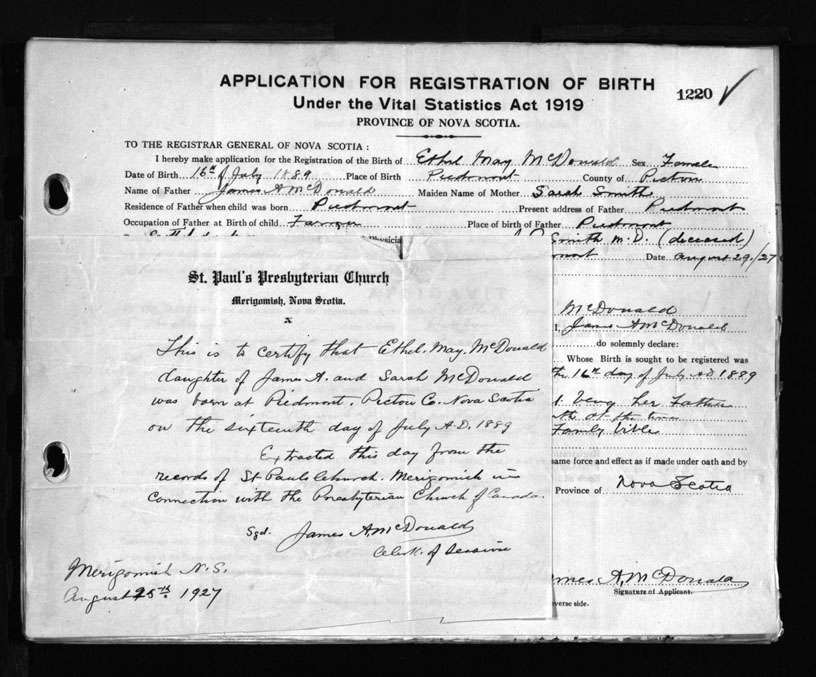 APPLICATION FOR REGISTRATION OF BIRTH
1220
Under the Vital Statistics Act 1919
PROVINCE OF NOVA SCOTIA.
TO THE REGISTRAR GENERAL OF NOVA SCOTIA :
I hereby make application for the Registration of the Birth of Ethel May McDonald Sex Female
Date of Birth 16th of July 1889 Place of Birth Piedmont County of Pictou
Name of Father James A McDonald Maiden Name of Mother Sarah Smith
Residence of Father when child was born Piedmont Present address of Father Piedmont
Occupation of Father at Birth of child Farmer Place of birth of Father Piedmont
Physicia Smith M.D. (deceased)
mont Date August 29/27
St. Paul's Presbyterian Church
Merigomish, Nova Scotia.
x
This is to certify that Ethel May McDonald
daughter of James A. and Sarah McDonald
was born at Piedmont, Pictou Co. Nova Scotia
on the sixteenth day of July A.D. 1889
Extracted this day from the
records of St Pauls Church. Merigomish in
connection with the Presbyterian Church of Canada.
Sgd. James A. McDonald
Clerk of Session
Merigomish N.S.
August 25th 1927
McDonald
I, James A McDonald
do solemnly declare:
Whose Birth is sought to be registered was
the 16th day of July A.D 1889
being her Father
at the time
Family Bible
ame force and effect as if made under oath and by
Province of Nova Scotia
ames A. McDonald
Signature of Applicant.
verse side.